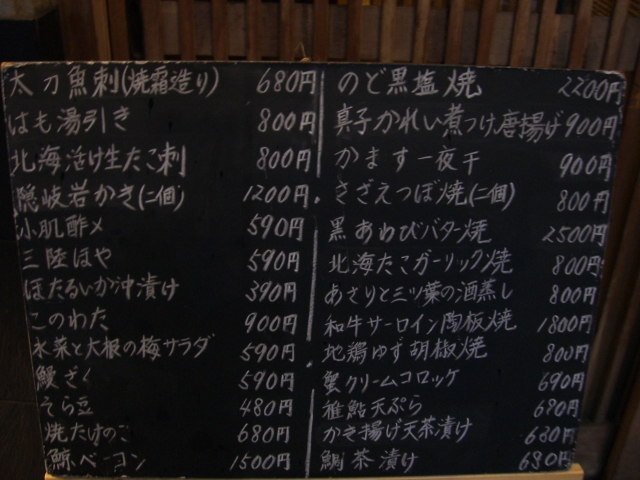 太刀魚刺(焼霜造り) 680円
はも湯引き 800円
北海活け生たこ刺 800円
隠岐岩がき(二個) 1200円
小肌酢〆 590円
三陸ほや 590円
ほたるいか沖漬け 390円
このわた 900円
水菜と大根の梅サラダ 590円
鰻ざく 590円
そら豆 480円
焼たけのこ 680円
鯨ベーコン 1500円
のど黒塩焼 2200円
真子がれい煮つけ唐揚げ 900円
かます一夜干 900円
さざえつぼ焼(二個) 800円
黒あわびバター焼 2500円
北海たこガーリック焼 800円
あさりと三ツ葉の酒蒸し 800円
和牛サーロイン陶板焼 1800円
地鶏ゆず胡椒焼 800円
蟹クリームコロッケ 690円
稚鮎天ぷら 680円
かき揚げ天茶漬け 680円
鯛茶漬け 690円